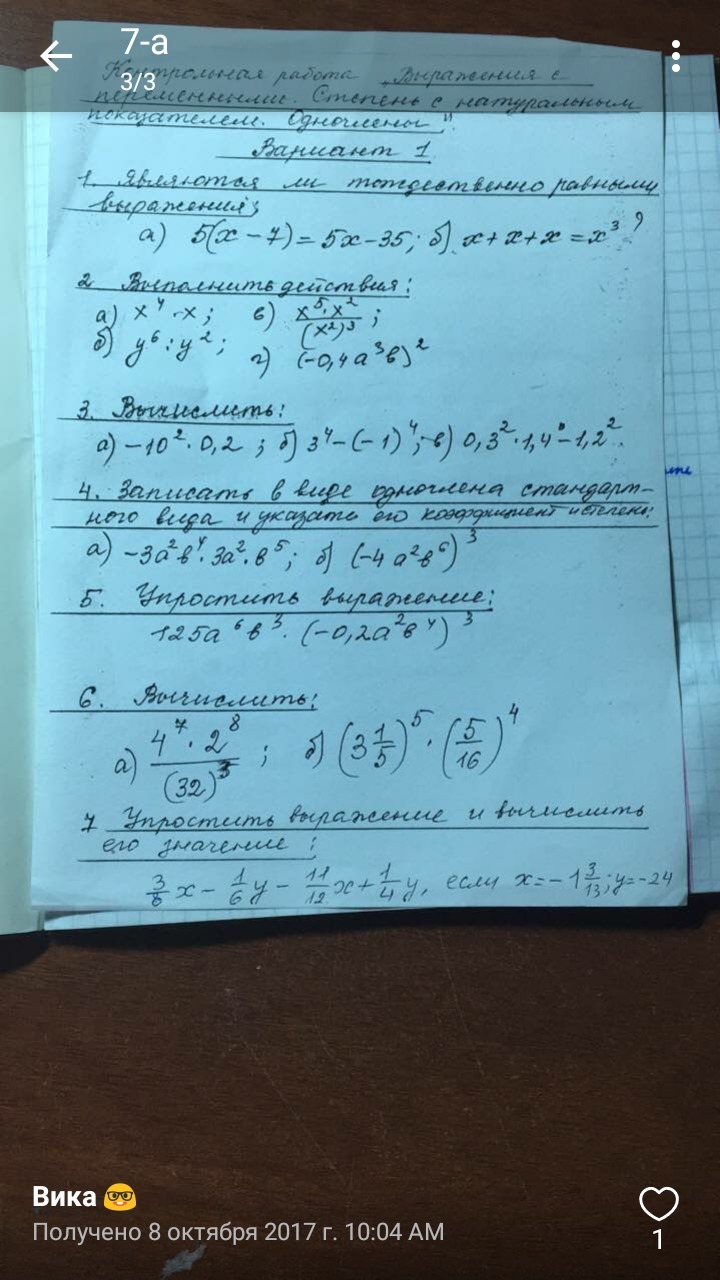 7-а
3/3
Контрольная работа „Выражения с
переменными. Степень с натуральным
показателем. Одночлены".
Вариант 1
1. Являются ли тождественно равными
выражения;
а) 5(x − 7) = 5x − 35; б) x + x + x = x³ ?
2 Выполнить действия:
а) x⁴ · x; в) x⁵ · x² / (x²)³ ;
б) y⁶ : y² ; г) (−0,4a³b)²
3. Вычислить:
а) −10² · 0,2 ; б) 3⁴ − (−1)⁴; в) 0,3² · 1,4⁰ − 1,2²
4. Записать в виде одночлена стандарт-
ного вида и указать его коэффициент и степень:
а) −3a²b⁴ · 3a² · b⁵; б) (−4a²b⁶)³
5. Упростить выражение:
125a⁶b³ · (−0,2a²b⁴)³
6. Вычислить:
а) 4⁷ · 2⁸ / (32)³ ; б) (3 1/5)⁵ · (5/16)⁴
7 Упростить выражение и вычислить
его значение:
x − 1/6 y − 11/12 x + 1/4 y, если x = −1 3/13; y = −24
Вика 🤓
Получено 8 октября 2017 г. 10:04 AM
1